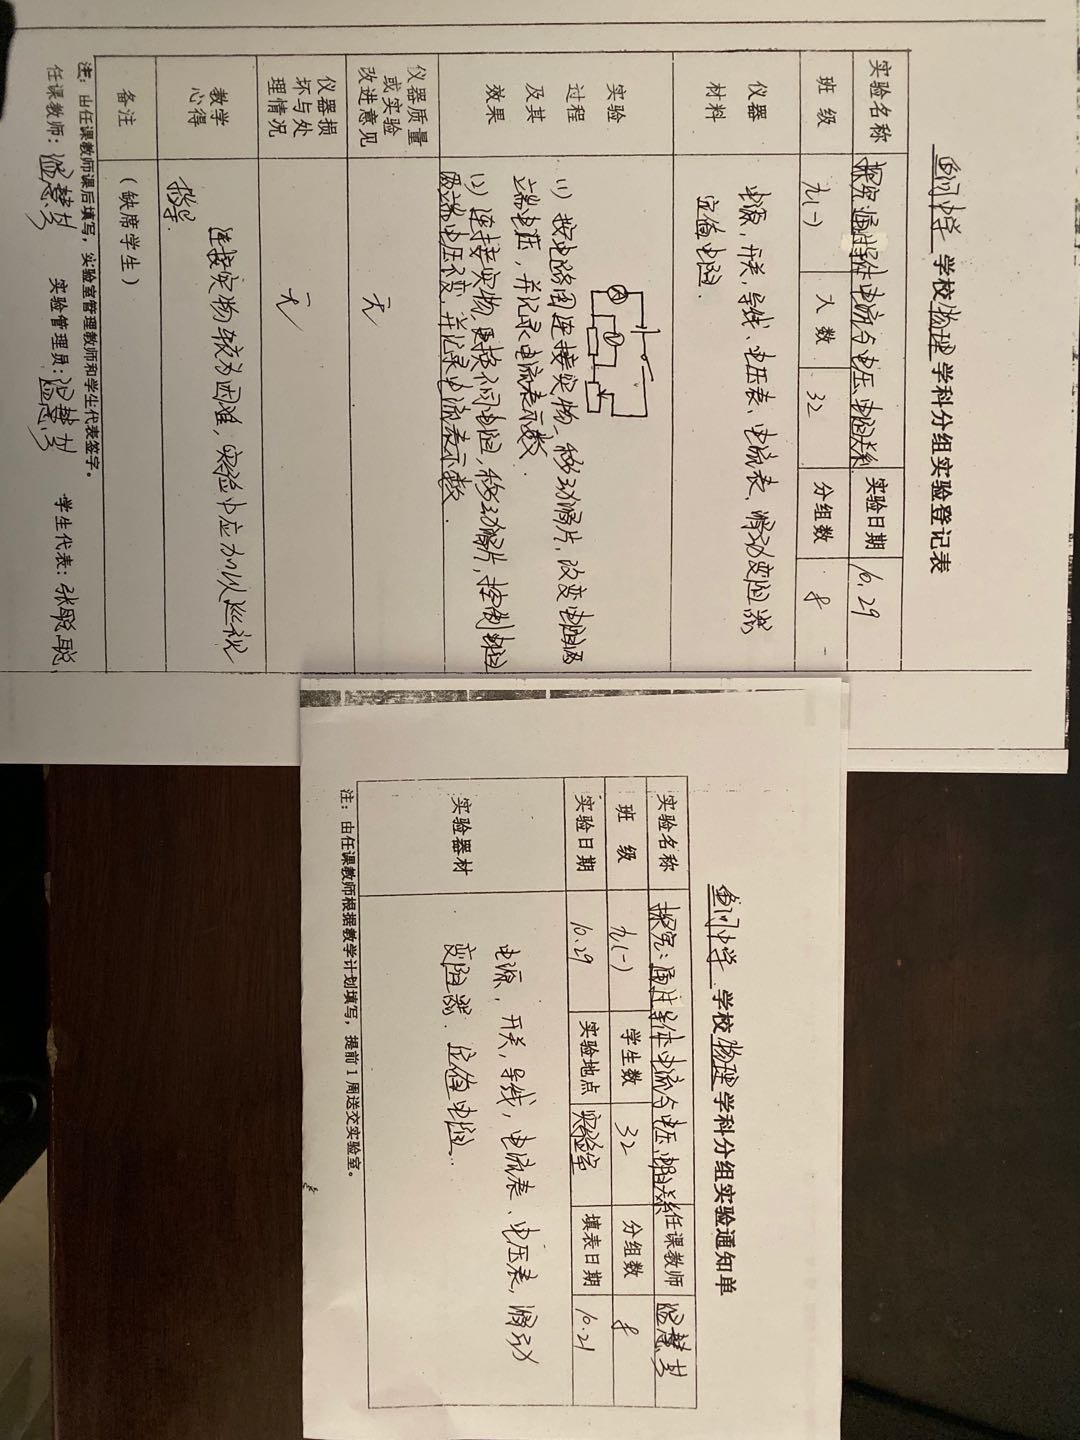 鱼门中学 学校 物理 学科分组实验登记表
实验名称 探究:通过导体电流与电压、电阻关系 实验日期 10.29
班级 九(一) 人数 32 分组数 8
仪器材料 电源，开关，导线、电压表、电流表，滑动变阻器
定值电阻．
实验过程及其效果
A V
(1) 按电路图连接实物，移动滑片，改变电阻两
端电压，并记录电流表示数．
(2) 连接实物，更换不同电阻，移动滑片，控制电阻
两端电压不变，并记录电流表示数．
仪器质量或实验改进意见 无
仪器损坏与处理情况 无
教学心得 连接实物较为困难，实验中应加以巡视
指导．
备注 (缺席学生)
注：由任课教师课后填写，实验室管理教师和学生代表签字。
任课教师： 实验管理员： 学生代表：张聪聪
鱼门中学 学校 物理 学科分组实验通知单
实验名称 探究：通过导体电流与电压、电阻关系 任课教师
班级 九(一) 学生数 32 分组数 8
实验日期 10.29 实验地点 实验室 填表日期 10.21
实验器材 电源，开关，导线，电流表、电压表，滑动
变阻器．定值电阻．
注：由任课教师根据教学计划填写，提前1周送交实验室。